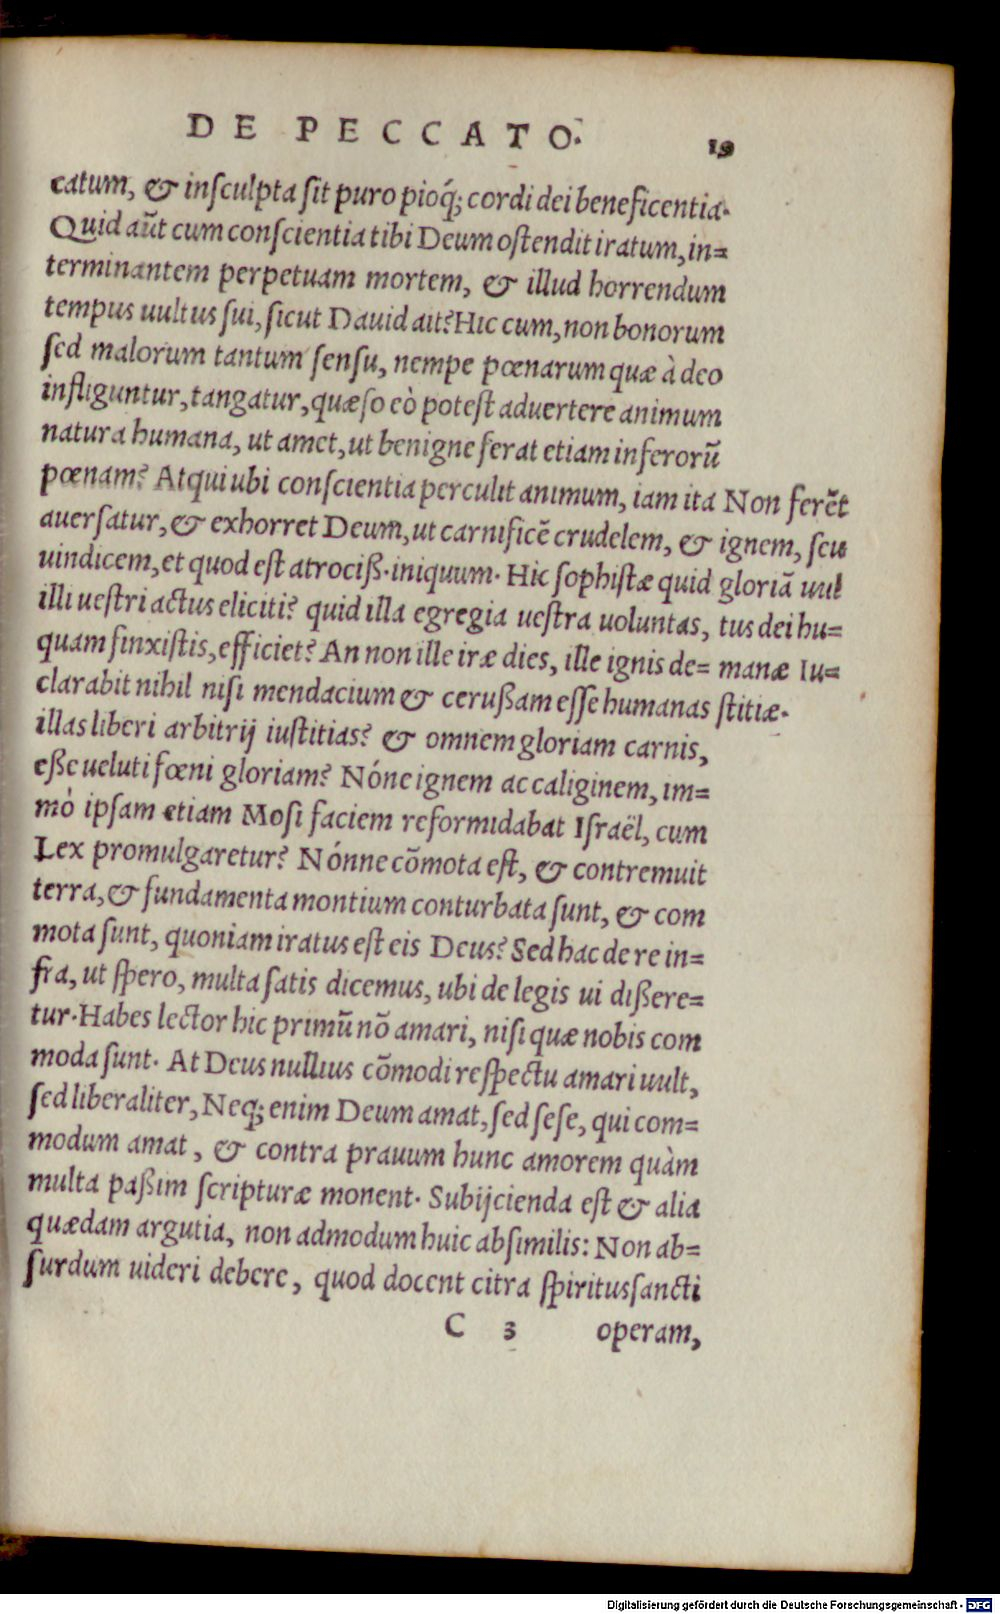 DE PECCATO.
19
catum, & insculpta sit puro pioq́; cordi dei beneficentia.
Quid aūt cum conscientia tibi Deum ostendit iratum, in=
terminantem perpetuam mortem, & illud horrendum
tempus uultus sui, sicut Dauid ait? Hic cum, non bonorum
sed malorum tantum sensu, nempe pœnarum quæ à deo
infliguntur, tangatur, quæso eò potest aduertere animum
natura humana, ut amet, ut benigne ferat etiam inferorū
pœnam? Atqui ubi conscientia perculit animum, iam ita
auersatur, & exhorret Deum, ut carnificē crudelem, &
uindicem, et quod est atrociß. iniquum. Hic sophistæ quid
illi uestri actus eliciti? quid illa egregia uestra uoluntas,
quam finxistis, efficiet? An non ille iræ dies, ille ignis de=
clarabit nihil nisi mendacium & cerußam esse humanas
illas liberi arbitrij iustitias? & omnem gloriam carnis,
eße ueluti fœni gloriam? Nónne ignem ac caliginem, im=
mò ipsam etiam Mosi faciem reformidabat Israël, cum
Lex promulgaretur? Nónne cōmota est, & contremuit
terra, & fundamenta montium conturbata sunt, & com
mota sunt, quoniam iratus est eis Deus? Sed hac de re in=
fra, ut spero, multa satis dicemus, ubi de legis ui dißere=
tur. Habes lector hic primū nō amari, nisi quæ nobis com
moda sunt. At Deus nullius cōmodi respectu amari uult,
sed liberaliter, Neq; enim Deum amat, sed sese, qui com=
modum amat, & contra prauum hunc amorem quàm
multa paßim scripturæ monent. Subijcienda est & alia
quædam argutia, non admodum huic absimilis: Non ab=
surdum uideri debere, quod docent citra spiritussancti
Non ferēt
ignem, seu
gloriā uul
tus dei hu=
manæ Iu=
stitiæ.
C 3
operam,
Digitalisierung gefördert durch die Deutsche Forschungsgemeinschaft - DFG